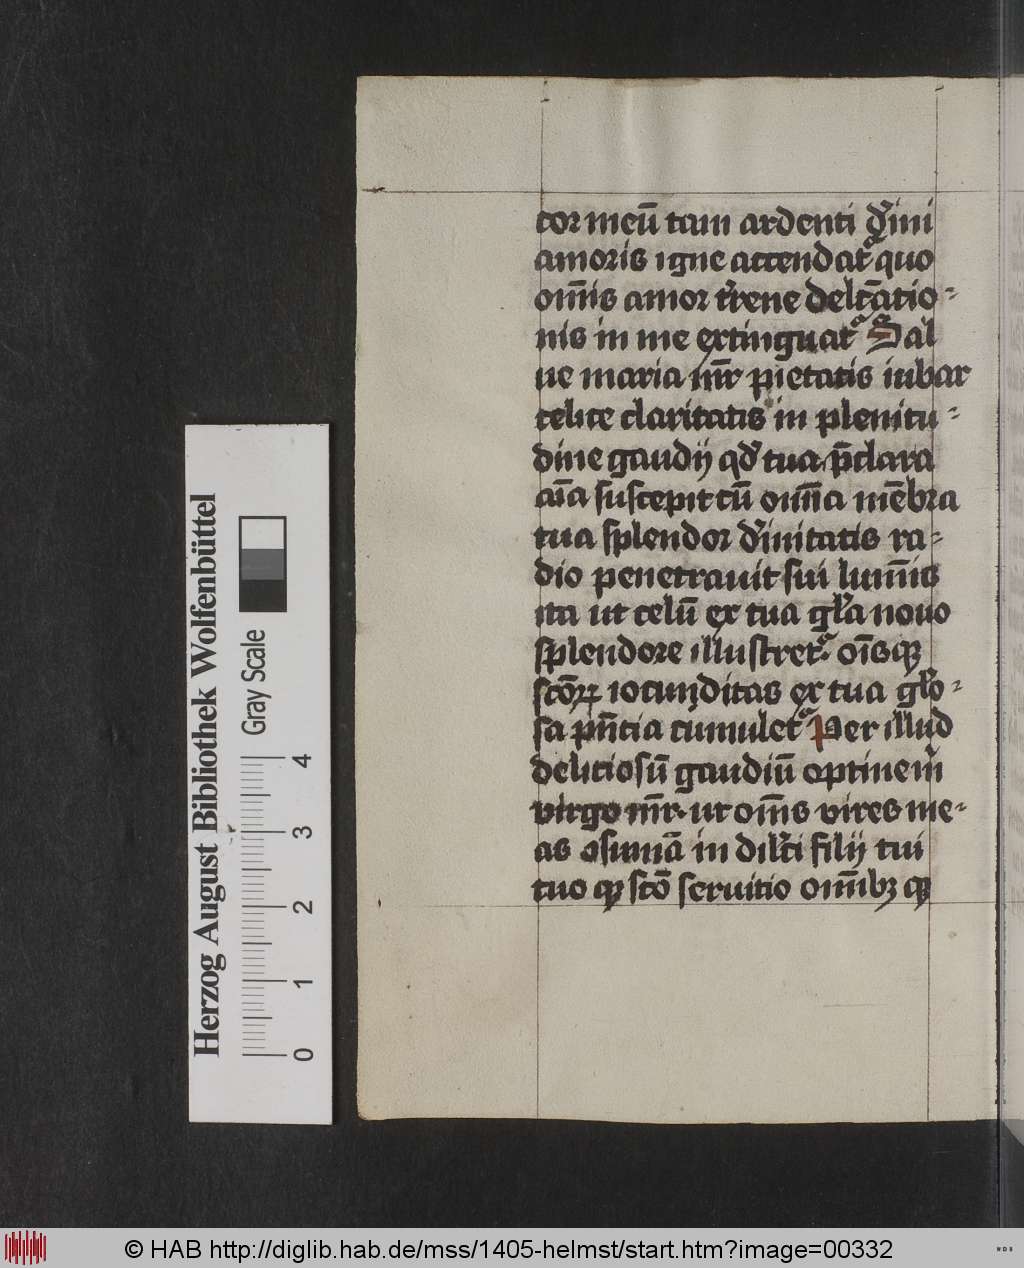 cor meū tam ardenti dīini
amoris igne accendat᷑ quo
om̄is amor t̄rene delc̄atio-
nis in me extinguat᷑ Sal
ue maria mr̄ pietatis iubar
celice claritatis in plenitu-
dine gaudij qd̄ tua p̄clara
aīa suscepit cū om̄ia mēbra
tua splendor dīinitatis ra-
dio penetrauit sui lum̄is
ita ut celū ex tua gl̄a nouo
splendore illustret᷑ oīsqꝫ
scōꝝ iocunditas ex tua gl̄o-
sa pn̄cia cumulet᷑ Per illud
deliciosū gaudiū optinem̄
virgo mr̄ ut om̄s vires me-
as ꝯsumā in dilc̄i filij tui
tuo qꝫ scō seruitio om̄ibꝫ qꝫ
Herzog August Bibliothek Wolfenbüttel
Gray Scale
0 1 2 3 4
© HAB http://diglib.hab.de/mss/1405-helmst/start.htm?image=00332